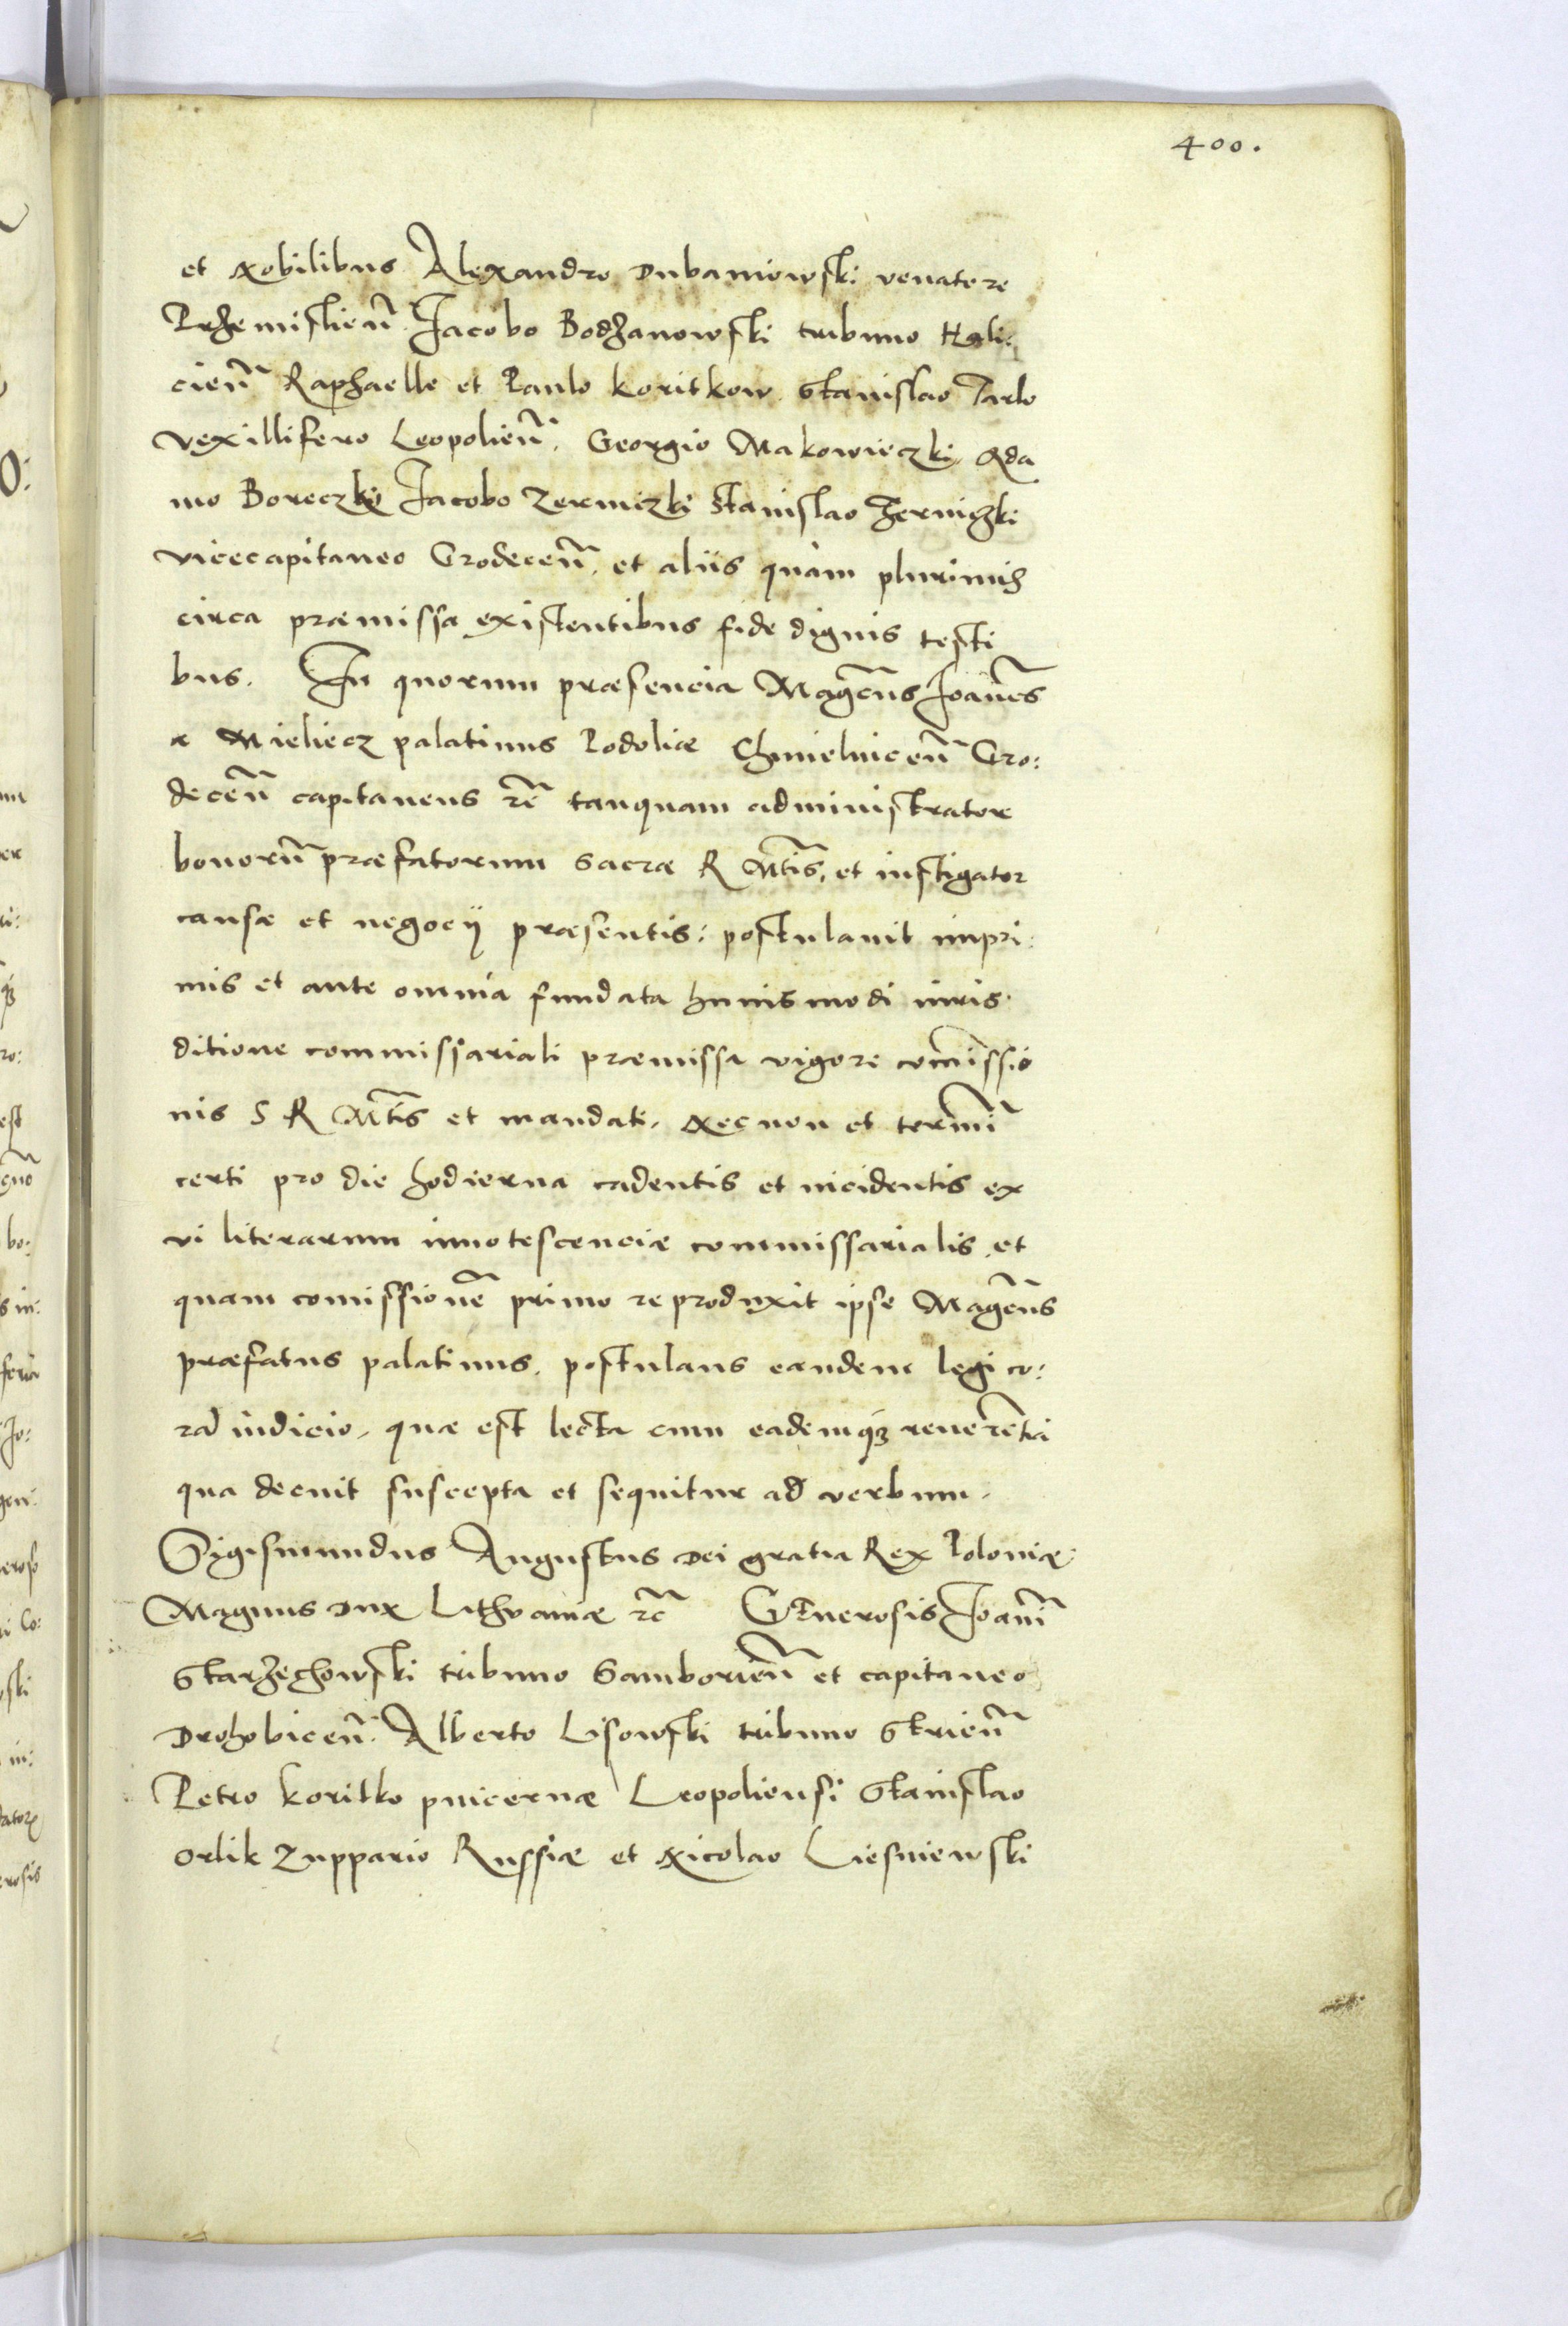 400.
et Nobilibus Alexandro Dubaniowski venatore
Przemislien̄. Jacobo Bodzanowski tribuno Hali:
cien̄ Raphaelle et Paulo Koritkow Stanislao Tarlo
vexillifero Leopolien̄. Georgio Makowieczki, Ada
mo Boreczki Jacobo Zerniczki Stanislao Zerniczki
vicecapitaneo Grodecen̄. et aliis quàm plurimis
circa præmissa existentibus fide dignis testi
bus. In quorum præsencia Magcūs Joanēs
a Mieliecz palatinus Podoliæ Chmielnicen̄ Gro:
decen̄ capitaneus rc̄ tanquam administrator
bonorū præfatorum sacræ R Mtīs, et instigator
causæ et negocij præsentis: postulavit impri:
mis et ante omnia fundata huiusmodi iuris:
ditione commissariali præmissa vigore com̄issio
nis S R Mtīs et mandati, Necnon et termīi
certi pro die hodierna cadentis et incidentis ex
vi literarum innotescenciæ commissarialis, et
quam comissionē primo reproduxit ipse Magcūs
præfatus palatinus, postulans eandem legi co:
rā iudicio, quæ est lecta cum eademq̄ reuerētia
qua decuit suscepta et sequitur ad verbum.
Sigismundus Augustus Dei gratia Rex Poloniæ:
Magnus Dux Lithvaniæ rc̄ GEnerosis Joanī
Starzechowski tribuno Samborien̄ et capitaneo
Drohobicen̄. Alberto Lisowski tribuno Strien̄
Petro Koritko pincernæ Leopoliensi Stanislao
Orlik Zuppario Russiæ et Nicolao Liesniewski